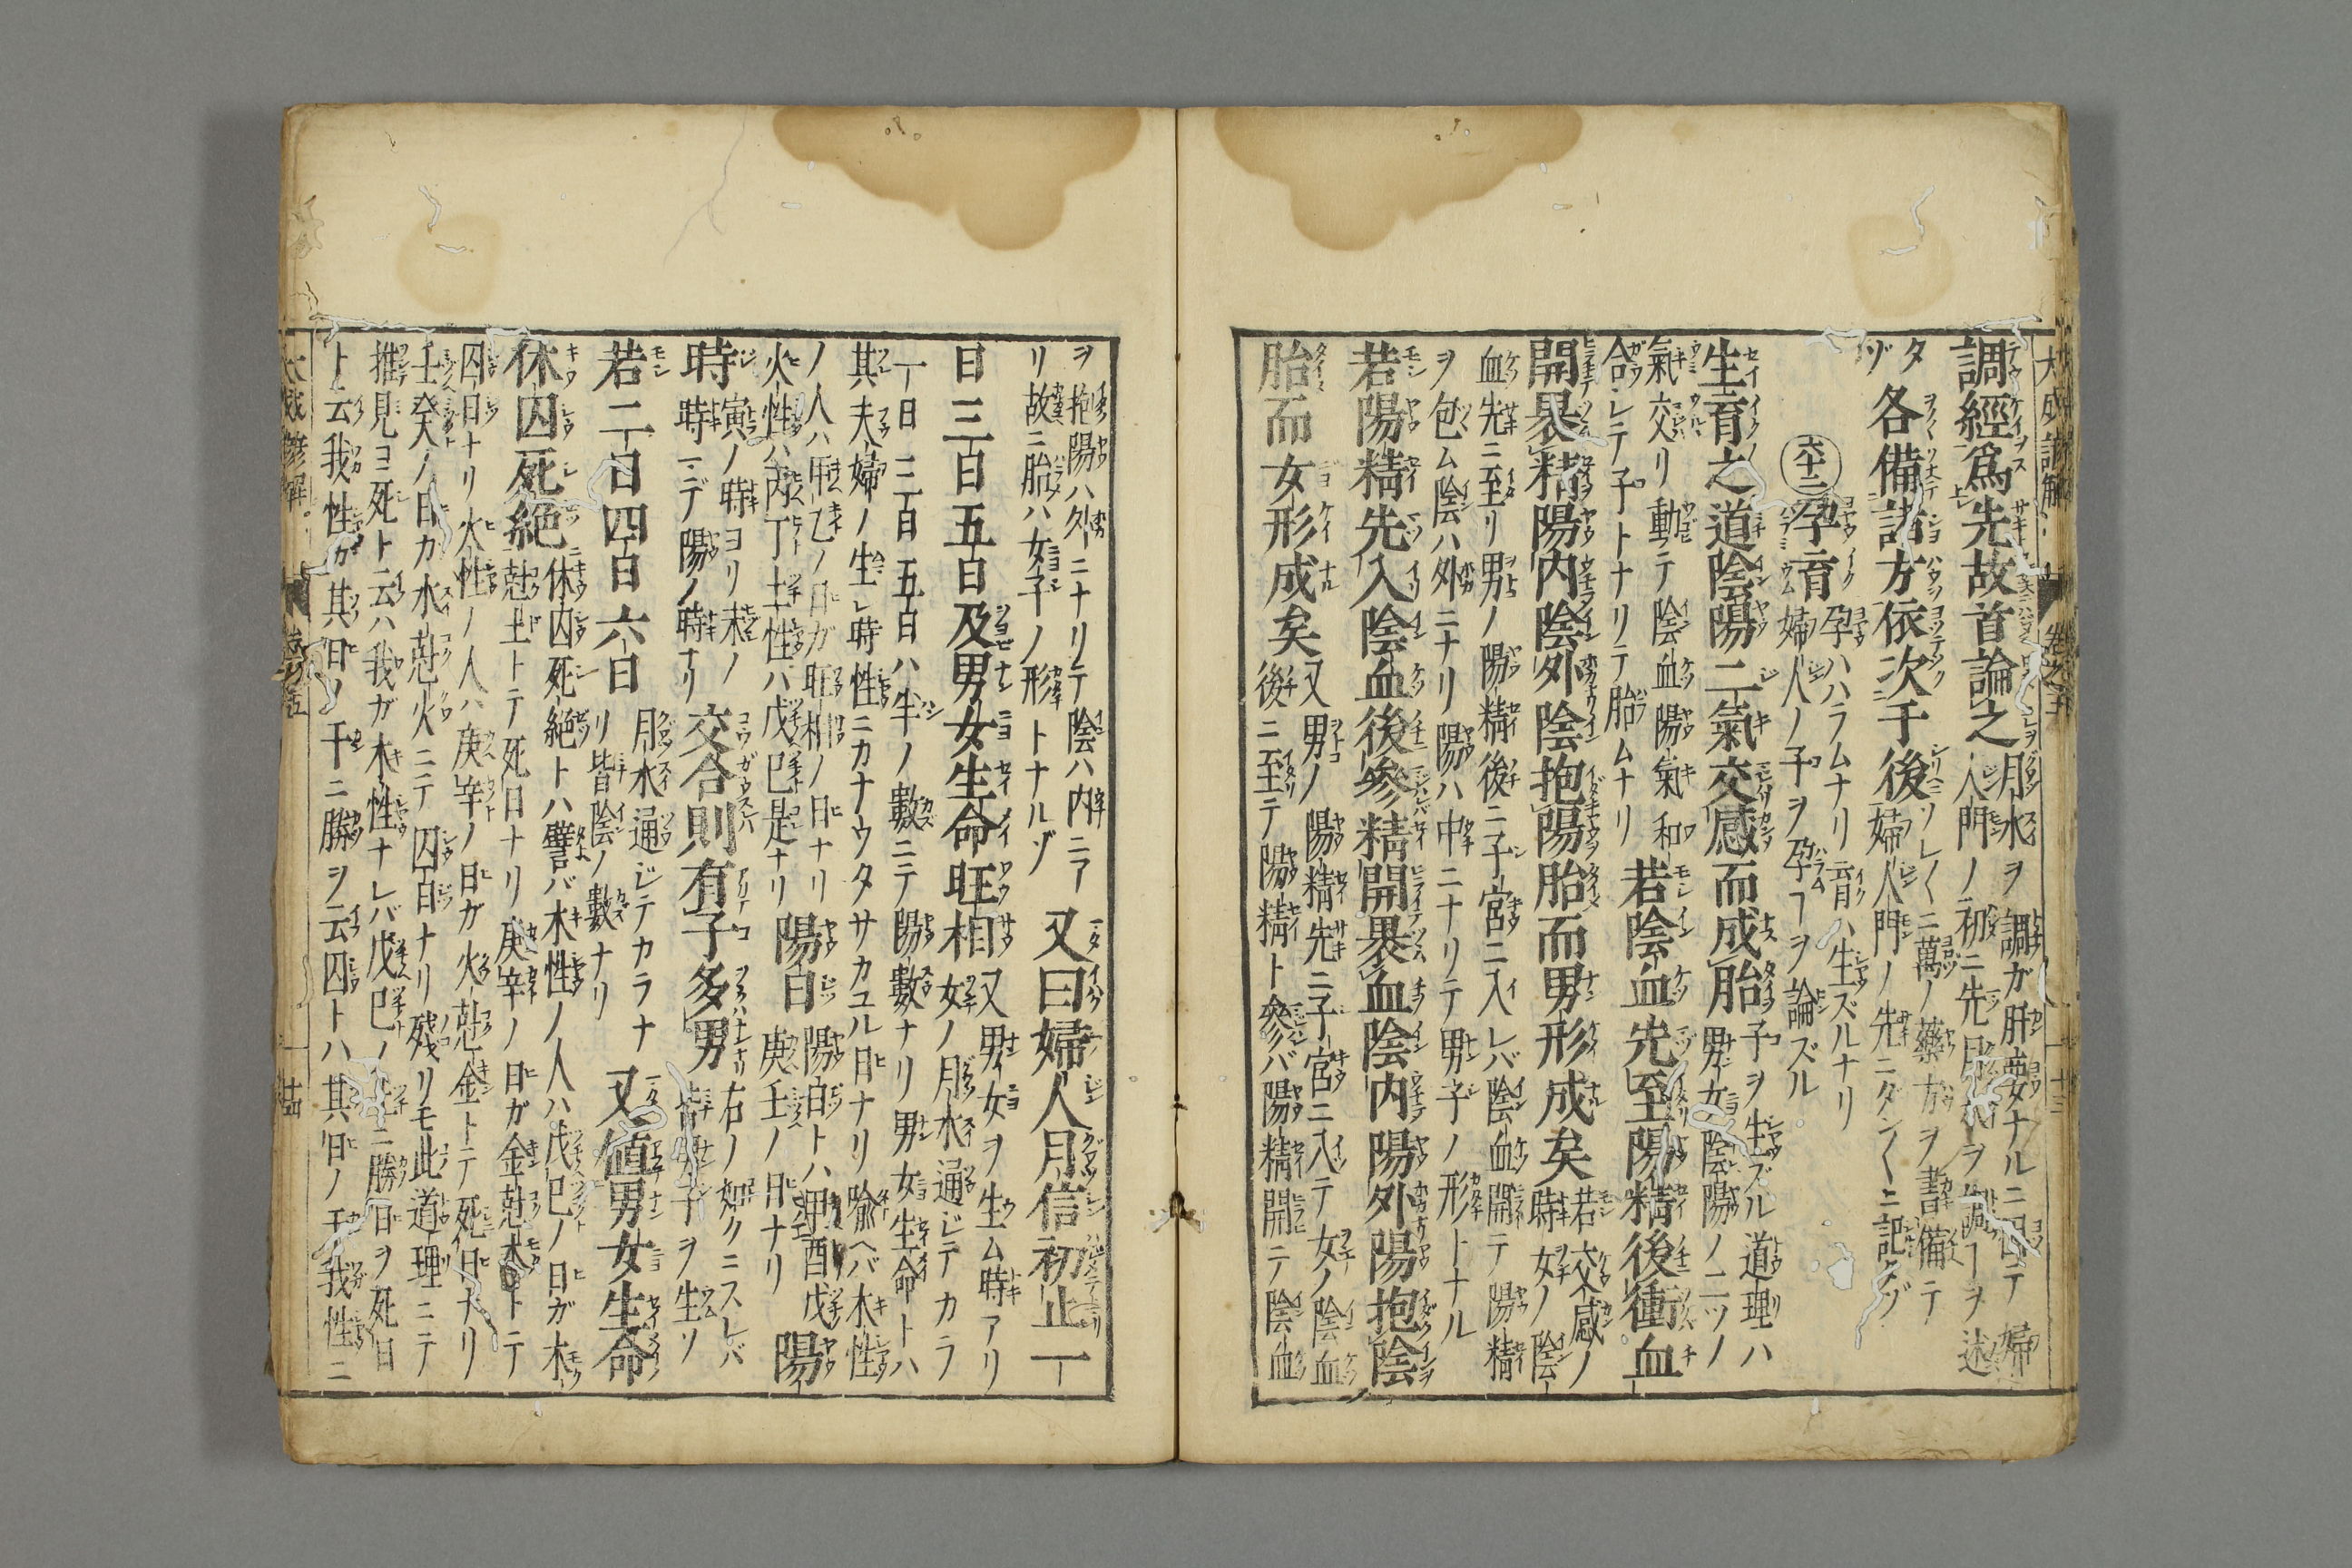 大成諺解 卷之五 十三
調經爲先故首論之
月水ヲ調ガ肝要ナルニ因テ婦
人門ノ初ニ先月水ヲ調ーヲ述
タ
ヅ
各備諸方依次于後
ソレ〱ニ萬ノ藥方ヲ書備テ
婦人門ノ先ニダン〱ニ記スゾ
六十二 孕育
孕ハハラムナリ育ハ生ズルナリ
婦人ノ子ヲ孕ーヲ論ズル
生育之道陰陽二氣交感而成胎
子ヲ生ズル道理ハ
男女陰陽ノ二ツノ
氣交リ動テ陰血陽氣和
合シテ子トナリテ胎ムナリ
若陰血先至陽精後衝血
開裹精陽内陰外陰抱陽胎而男形成矣
若交感ノ
時女ノ陰
血先ニ至リ男ノ陽精後ニ子宮ニ入レバ陰血開テ陽精
ヲ包ム陰ハ外ニナリ陽ハ中ニナリテ男子ノ形トナル
若陽精先入陰血後參精開裹血陰内陽外陽抱陰
胎而女形成矣
又男ノ陽精先ニ子宮ニ入テ女ノ陰血
後ニ至テ陽精ト參バ陽精開ニテ陰血
ヲ抱陽ハ外ニナリテ陰ハ内ニア
リ故ニ胎ハ女子ノ形トナルゾ
又曰婦人月信初止一
日三日五日及男女生命旺相
又男女ヲ生ム時アリ
女ノ月水通ジテカラ
一日三日五日ハ半ノ數ニテ陽數ナリ男女生命トハ
其夫婦ノ生レ時性ニカナウタサカユル日ナリ喩ヘバ木性
ノ人ハ甲乙ノ日ガ旺相ノ日ナリ
火性ハ丙丁土性ハ戊巳是ナリ
陽日
陽日トハ甲酉戊
庚壬ノ日ナリ
陽
時
寅ノ時ヨリ未ノ
時マデ陽ノ時ナリ
交合則有子多男
右ノ如クニスレバ
皆男子ヲ生ゾ
若二日四日六日
月水通ジテカラナ
リ皆陰ノ數ナリ
又値男女生命
休囚死絶
休囚死絶トハ譬バ木性ノ人ハ戊巳ノ日ガ木
尅土トテ死日ナリ庚辛ノ日ガ金尅木トテ
囚日ナリ火性ノ人ハ庚辛ノ日ガ火尅金トテ死日ナリ
壬癸ノ日カ水尅火ニテ囚日ナリ殘リモ此道理ニテ
推見ヨ死ト云ハ我ガ木性ナレバ戊巳ノ土ニ勝日ヲ死日
ト云我性ガ其日ノ干ニ勝ヲ云囚トハ其日ノ干我性ニ
大成諺解 卷之五 十四